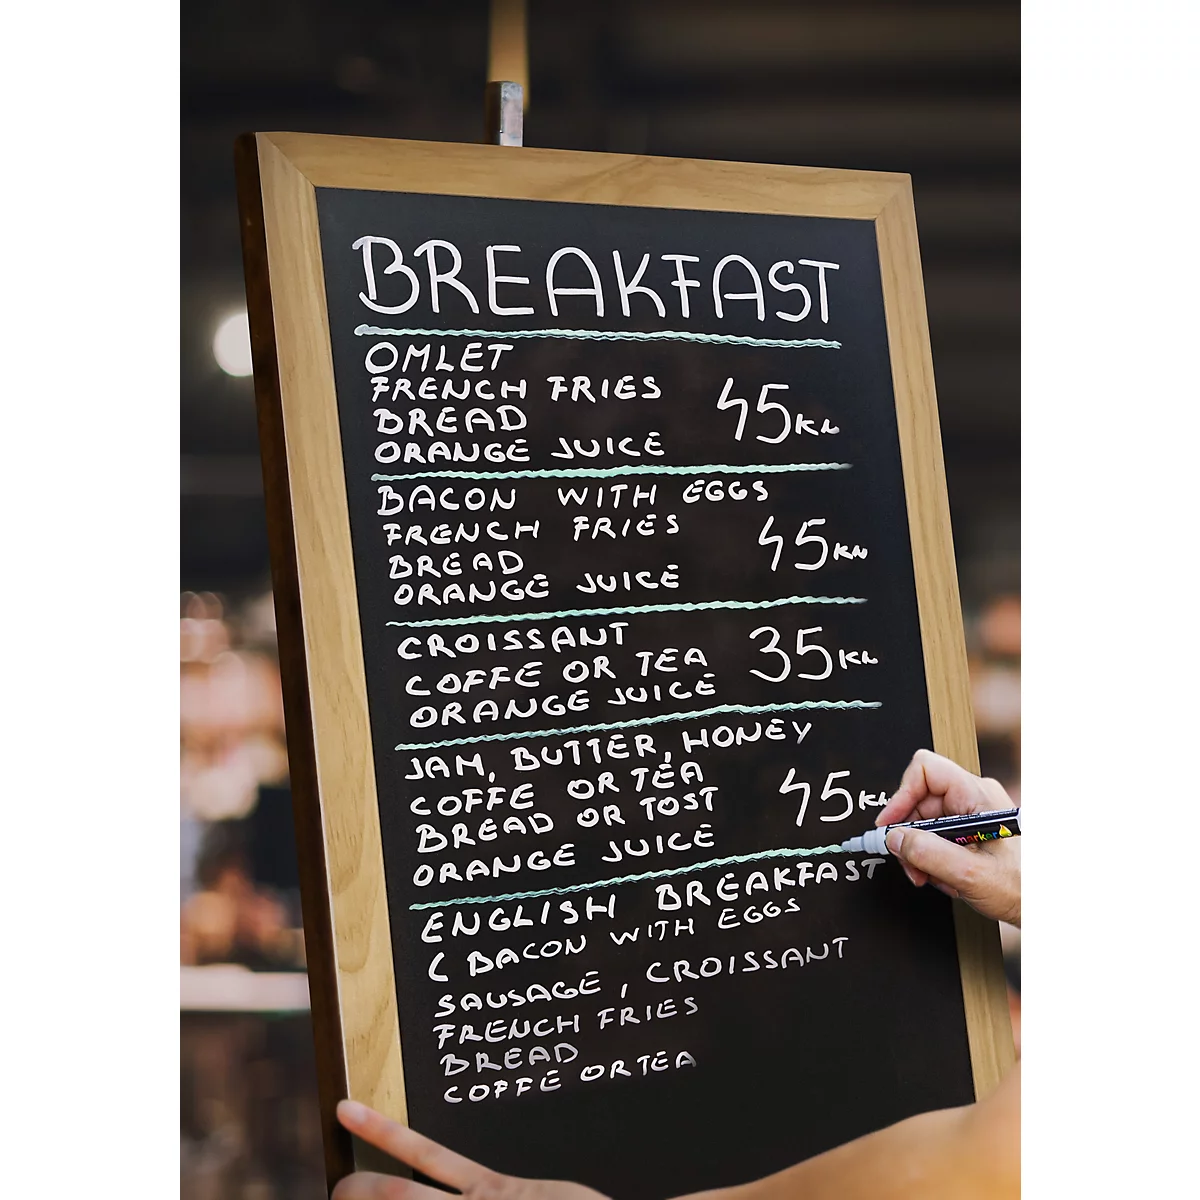 BREAKFAST
OMLET
FRENCH FRIES
BREAD
ORANGE JUICE
45KN
BACON WITH EGGS
FRENCH FRIES
BREAD
ORANGE JUICE
45KN
CROISSANT
COFFE OR TEA
ORANGE JUICE
35KN
JAM, BUTTER, HONEY
COFFE OR TEA
BREAD OR TOST
ORANGE JUICE
45KN
marker
ENGLISH BREAKFAST
( BACON WITH EGGS
SAUSAGE, CROISSANT
FRENCH FRIES
BREAD
COFFE OR TEA